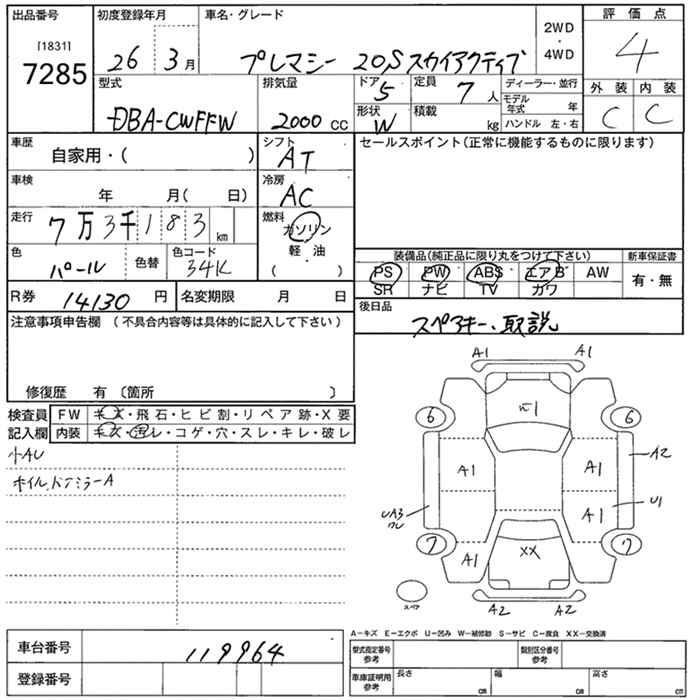 出品番号 初度登録年月 車名・グレード 2WD・4WD 評価点
[1831]
7285
26 3月 プレマシー 20Sスカイアクティブ 4
型式 排気量 ドア 5 定員 7人 ディーラー・並行 外装 内装
DBA-CWFFW 2000 cc 形状 W 積載 kg モデル年式 年 C C
ハンドル 左・右
車歴 自家用・( ) シフト AT セールスポイント(正常に機能するものに限ります)
車検 年 月( 日) 冷房 AC
走行 7万3千183km 燃料 ガソリン
軽・油
( )
色 パール 色替 色コード 34K 装備品(純正品に限り丸をつけて下さい) 新車保証書
PS PW ABS エアB AW 有・無
SR ナビ TV カワ
R券 14130円 名変期限 月 日 後日品
スペアキー、取説
注意事項申告欄(不具合内容等は具体的に記入して下さい)
修復歴 有〔箇所 〕
検査員 FW キズ・飛石・ヒビ割・リペア跡・X要
記入欄 内装 キズ・汚レ・コゲ・穴・スレ・キレ・破レ
小AU
ホイル、ドアミラーA
A1 A1
6 6
1
A1 A1 A2
UA3 A1 U1
ワレ
7 7
A1 XX
スペア A2 A2
A－キズ E－エクボ U－凹み W－補修跡 S－サビ C－腐食 XX－交換済
車台番号 119964 型式指定番号 参考 類別区分番号 参考
登録番号 車庫証明用 参考 長さ cm 幅 cm 高さ cm